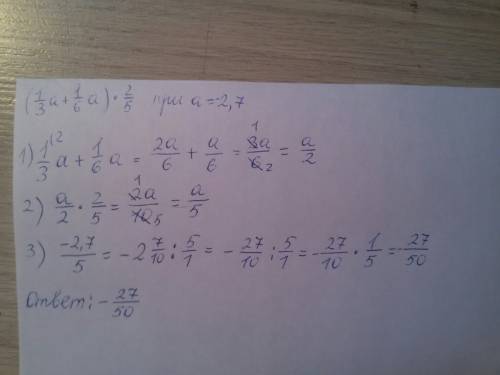 (1/3 a + 1/6 a) · 2/5 при a = -2,7
1) 1/3 a \2 + 1/6 a = 2a/6 + a/6 = 3a/6 1 2 = a/2
2) a/2 · 2/5 = 2a/10 1 5 = a/5
3) -2,7/5 = -2 7/10 : 5/1 = - 27/10 : 5/1 = - 27/10 · 1/5 = - 27/50
Ответ: - 27/50